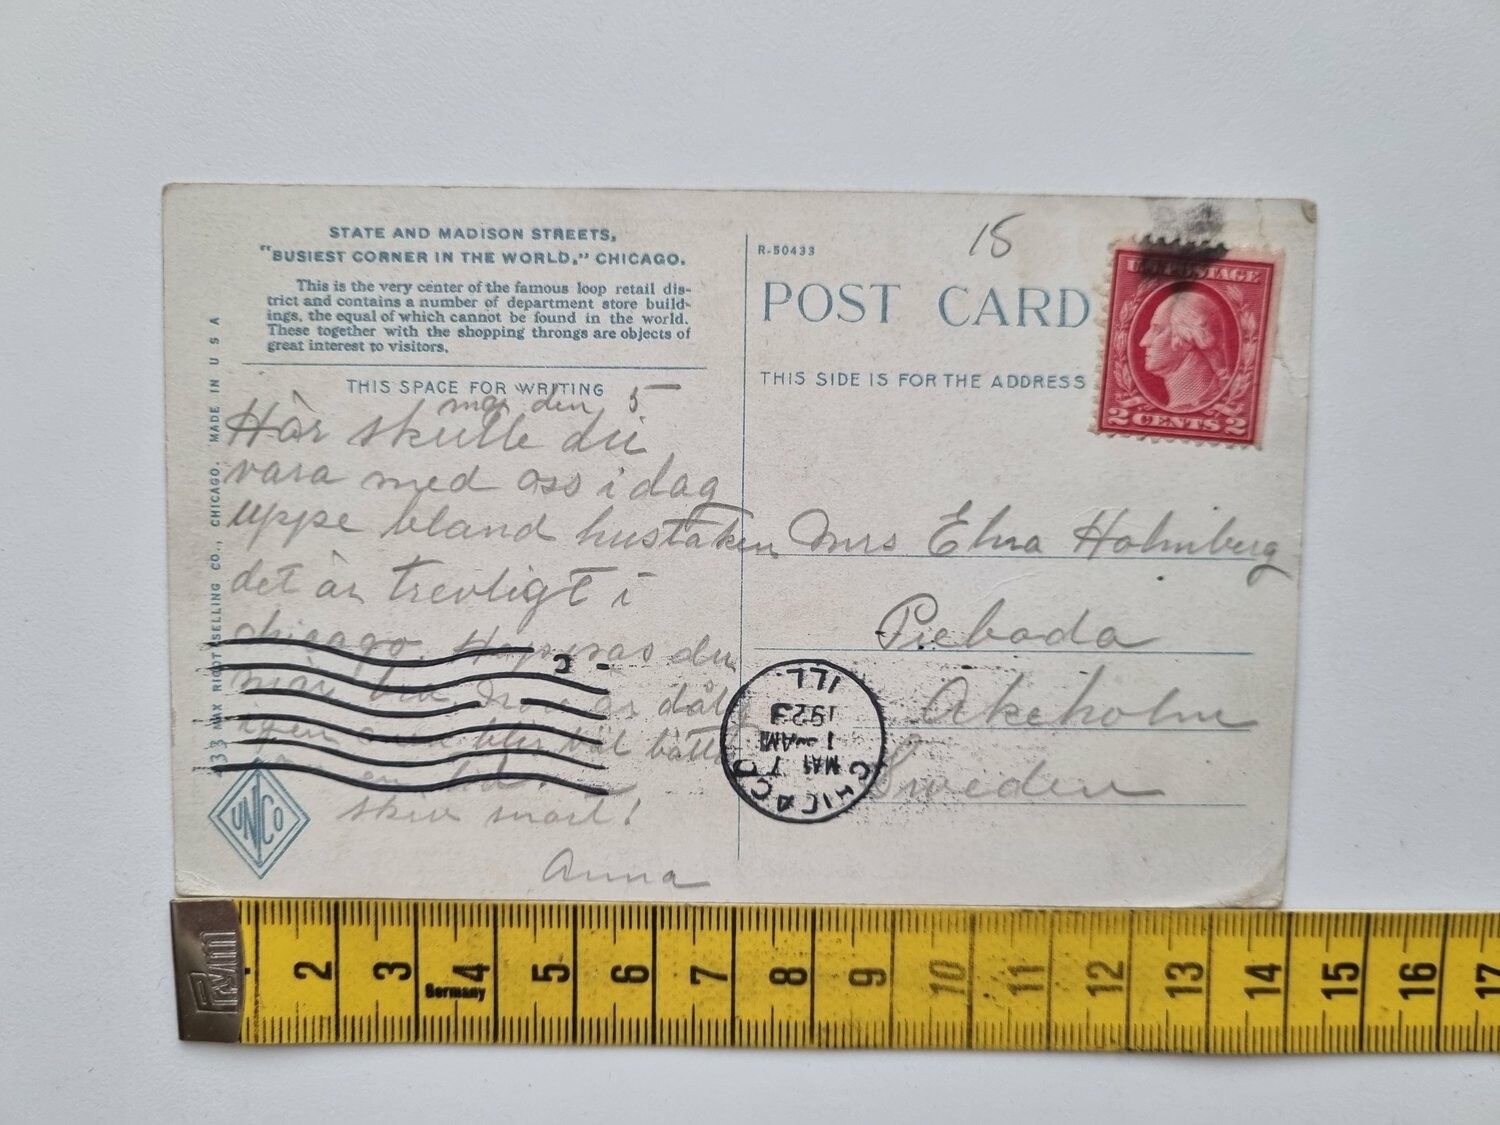 STATE AND MADISON STREETS,
"BUSIEST CORNER IN THE WORLD," CHICAGO.
This is the very center of the famous loop retail dis-
trict and contains a number of department store build-
ings, the equal of which cannot be found in the world.
These together with the shopping throngs are objects of
great interest to visitors.
THIS SPACE FOR WRITING
maj den 5
Här skulle du
vara med oss i dag
uppe bland hustaken
det är trevligt i
chicago. Hoppas du
mår bra är dålig
igen men blir väl bättre
skriv snart!
Anna
433 MAX RIGOT SELLING CO., CHICAGO. MADE IN U S A
UNCO
R-50433
15
POST CARD
THIS SIDE IS FOR THE ADDRESS
U.S. POSTAGE
2 CENTS 2
Mrs Elna Holmberg
Pieboda
Akeholm
Sweden
CHICAGO
MAY 7
1-AM
1923
ILL
2 3 4 5 6 7 8 9 10 11 12 13 14 15 16 17
Germany
Prym